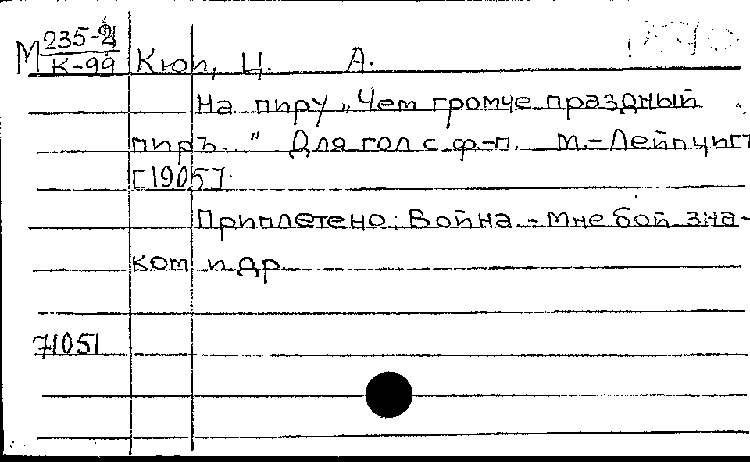 М 235-2
К-99 Кюи, Ц. А.
На пиру „Чем громче праздный
пиръ..." Для гол с ф-п. М.-Лейпциг
[1905]
Приплетено: Война. - Мне бой зна-
ком и др
71051